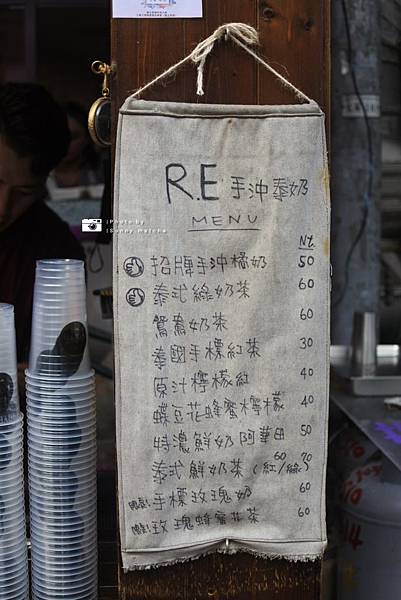 R.E 手沖泰奶
MENU
Nt.
招牌手沖橘奶 50
泰式綠奶茶 60
鴛鴦奶茶 60
泰國手標紅茶 30
原汁檸檬紅 40
蝶豆花蜂蜜檸檬 40
特濃鮮奶阿華田 50
泰式鮮奶茶(紅/綠) 60 70
手標玫瑰奶 60
玫瑰蜂蜜花茶 60
Photo by
Sunny.matcha